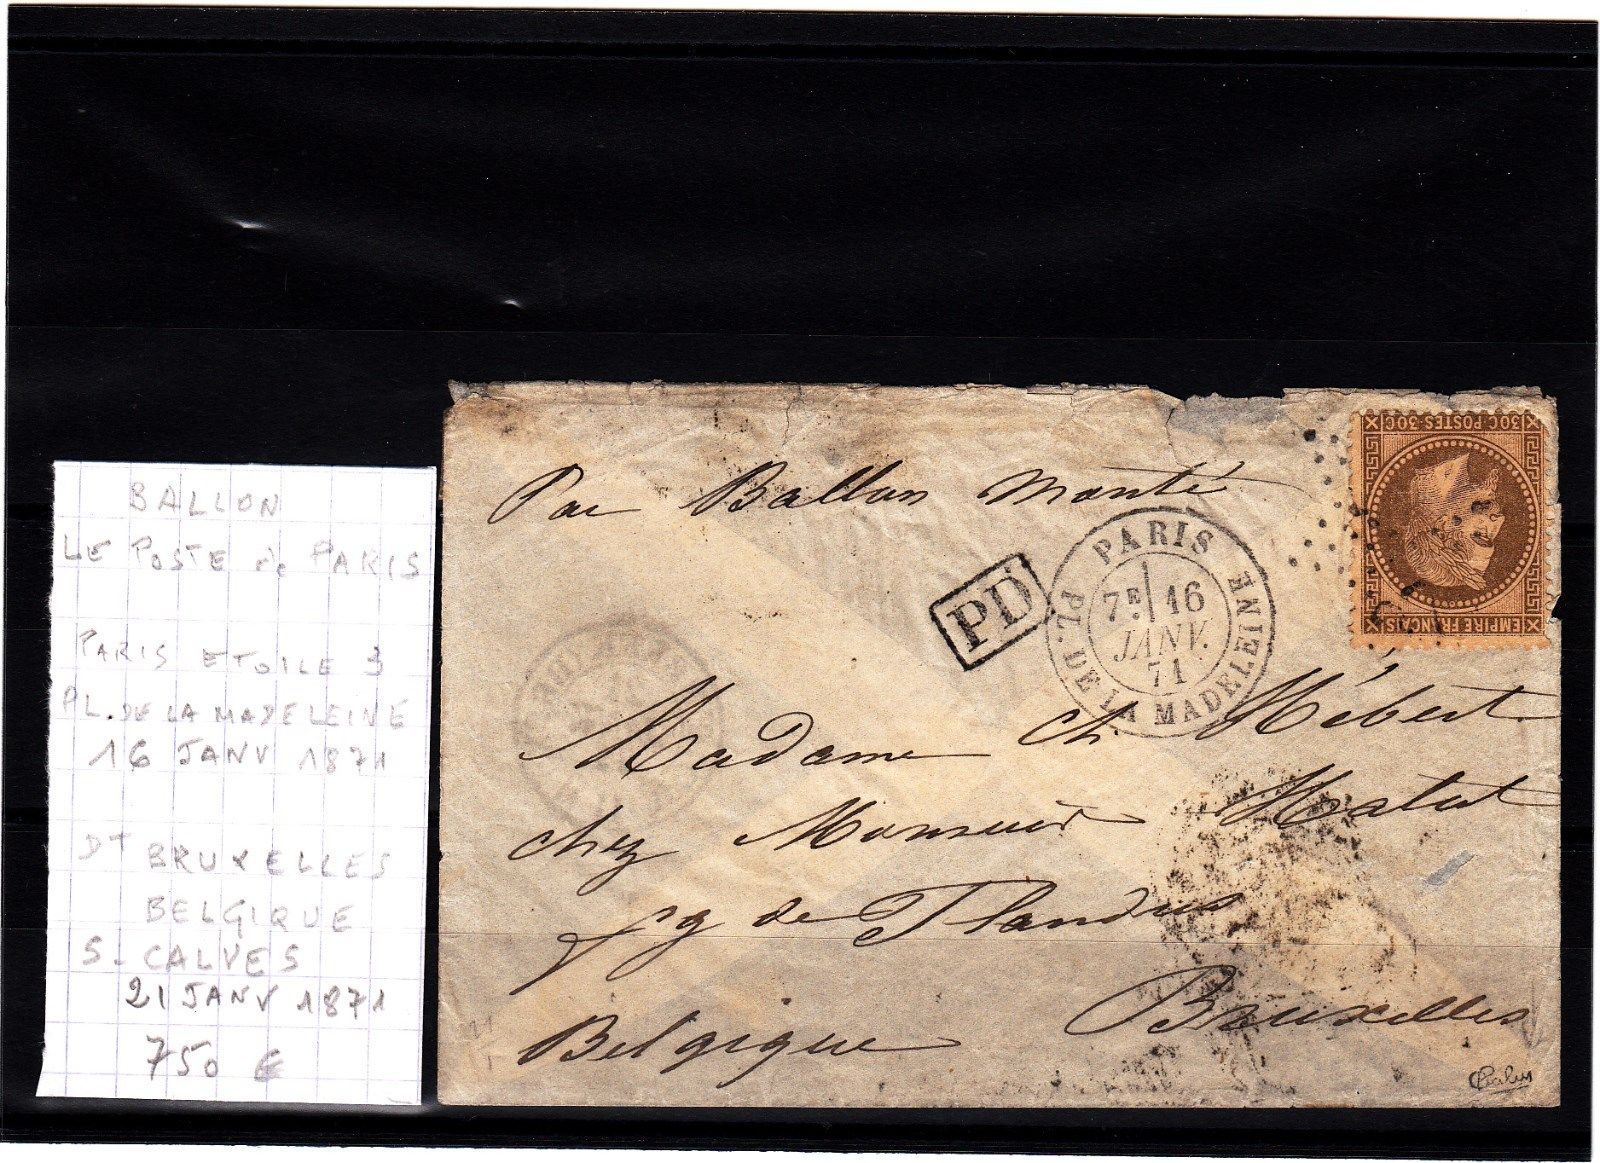 BALLON
LE POSTE de PARIS
PARIS ETOILE 3
PL. DE LA MADELEINE
16 JANV 1871
DT BRUXELLES
BELGIQUE
S. CALVES
21 JANV 1871
750 €
Par Ballon monté
30C POSTES 30C
EMPIRE FRANÇAIS
PD
PARIS
7E 16
JANV.
71
PL. DE LA MADELEINE
Madame Ch Hébert
chez Monsieur
fg de Flandres
Bruxelles
Belgique
Calves